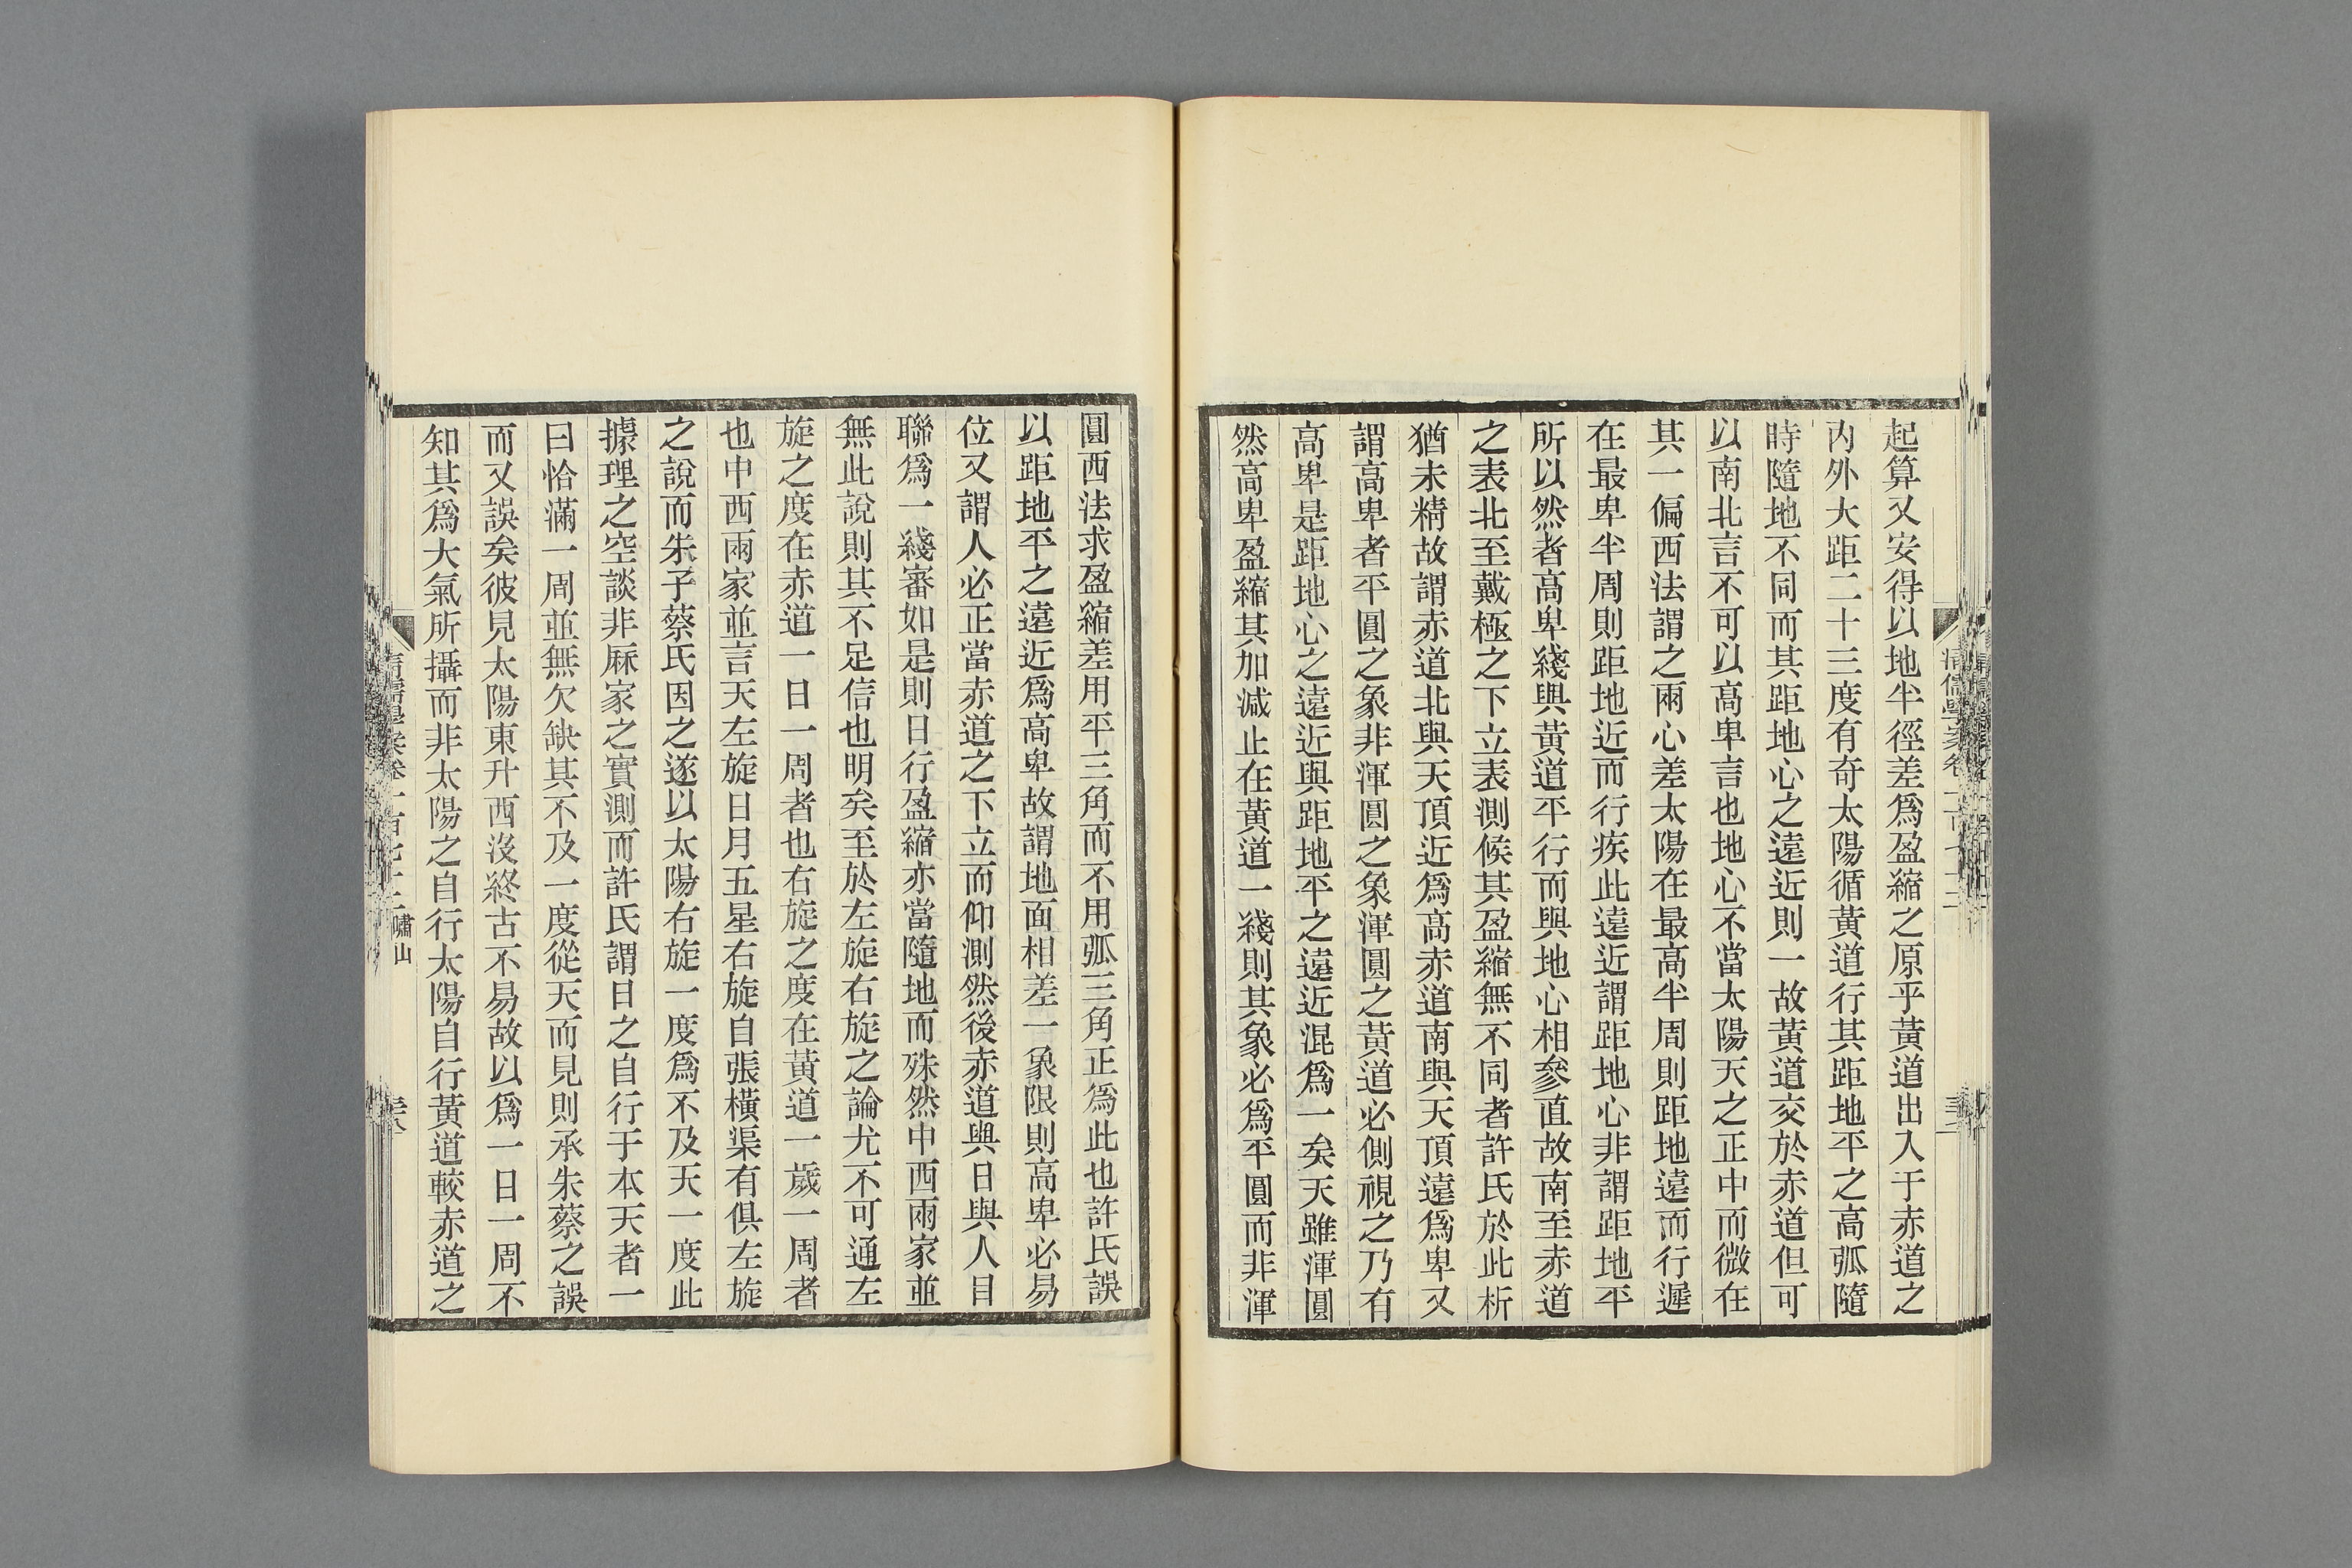 起算又安得以地半徑差爲盈縮之原乎黃道出入于赤道之
內外大距二十三度有奇太陽循黃道行其距地平之高弧隨
時隨地不同而其距地心之遠近則一故黃道交於赤道但可
以南北言不可以高卑言也地心不當太陽天之正中而微在
其一偏西法謂之兩心差太陽在最高半周則距地遠而行遲
在最卑半周則距地近而行疾此遠近謂距地心非謂距地平
所以然者高卑綫與黃道平行而與地心相參直故南至赤道
之表北至戴極之下立表測候其盈縮無不同者許氏於此析
猶未精故謂赤道北與天頂近爲高赤道南與天頂遠爲卑又
謂高卑者平圓之象非渾圓之象渾圓之黃道必側視之乃有
高卑是距地心之遠近與距地平之遠近混爲一矣天雖渾圓
然高卑盈縮其加減止在黃道一綫則其象必爲平圓而非渾
圓西法求盈縮差用平三角而不用弧三角正爲此也許氏誤
以距地平之遠近爲高卑故謂地面相差一象限則高卑必易
位又謂人必正當赤道之下立而仰測然後赤道與日與人目
聯爲一綫審如是則日行盈縮亦當隨地而殊然中西兩家並
無此說則其不足信也明矣至於左旋右旋之論尤不可通左
旋之度在赤道一日一周者也右旋之度在黃道一歲一周者
也中西兩家並言天左旋日月五星右旋自張橫渠有俱左旋
之說而朱子蔡氏因之遂以太陽右旋一度爲不及天一度此
據理之空談非厤家之實測而許氏謂日之自行于本天者一
日恰滿一周並無欠缺其不及一度從天而見則承朱蔡之誤
而又誤矣彼見太陽東升西沒終古不易故以爲一日一周不
知其爲大氣所攝而非太陽之自行太陽自行黃道較赤道之
嘯山